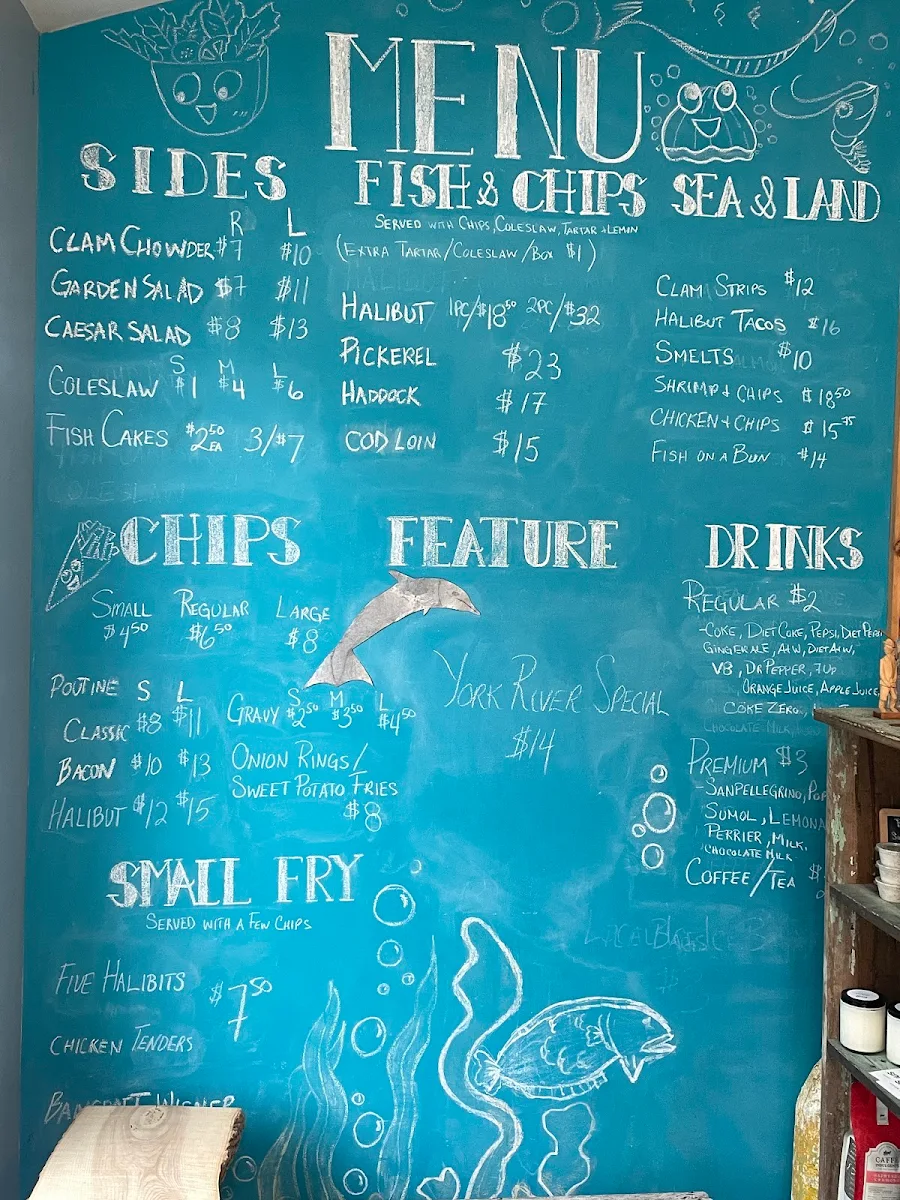 MENU
SIDES
R L
CLAM CHOWDER $7 $10
GARDEN SALAD $7 $11
CAESAR SALAD $8 $13
S M L
COLESLAW $1 $4 $6
FISH CAKES $2.50 EA 3/$7
FISH & CHIPS
SERVED WITH CHIPS, COLESLAW, TARTAR + LEMON
(EXTRA TARTAR/COLESLAW/BOX $1)
HALIBUT 1PC/$18.50 2PC/$32
PICKEREL $23
HADDOCK $17
COD LOIN $15
SEA & LAND
CLAM STRIPS $12
HALIBUT TACOS $16
SMELTS $10
SHRIMP & CHIPS $18.50
CHICKEN + CHIPS $15.75
FISH ON A BUN $14
CHIPS
SMALL REGULAR LARGE
$4.50 $6.50 $8
POUTINE S L
CLASSIC $8 $11
BACON $10 $13
HALIBUT $12 $15
S M L
GRAVY $2.50 $3.50 $4.50
ONION RINGS/
SWEET POTATO FRIES
$8
FEATURE
YORK RIVER SPECIAL
$14
DRINKS
REGULAR $2
-COKE, DIET COKE, PEPSI, DIET PEPSI
GINGERALE, A+W, DIET A+W,
V8, DR PEPPER, 7UP
ORANGE JUICE, APPLE JUICE,
COKE ZERO,
CHOCOLATE MILK
PREMIUM $3
-SANPELLEGRINO,
SUMOL, LEMONA
PERRIER, MILK,
CHOCOLATE MILK
COFFEE/TEA $
SMALL FRY
SERVED WITH A FEW CHIPS
FIVE HALIBITS
$7.50
CHICKEN TENDERS
BANCROFT WIENER
CAFFE